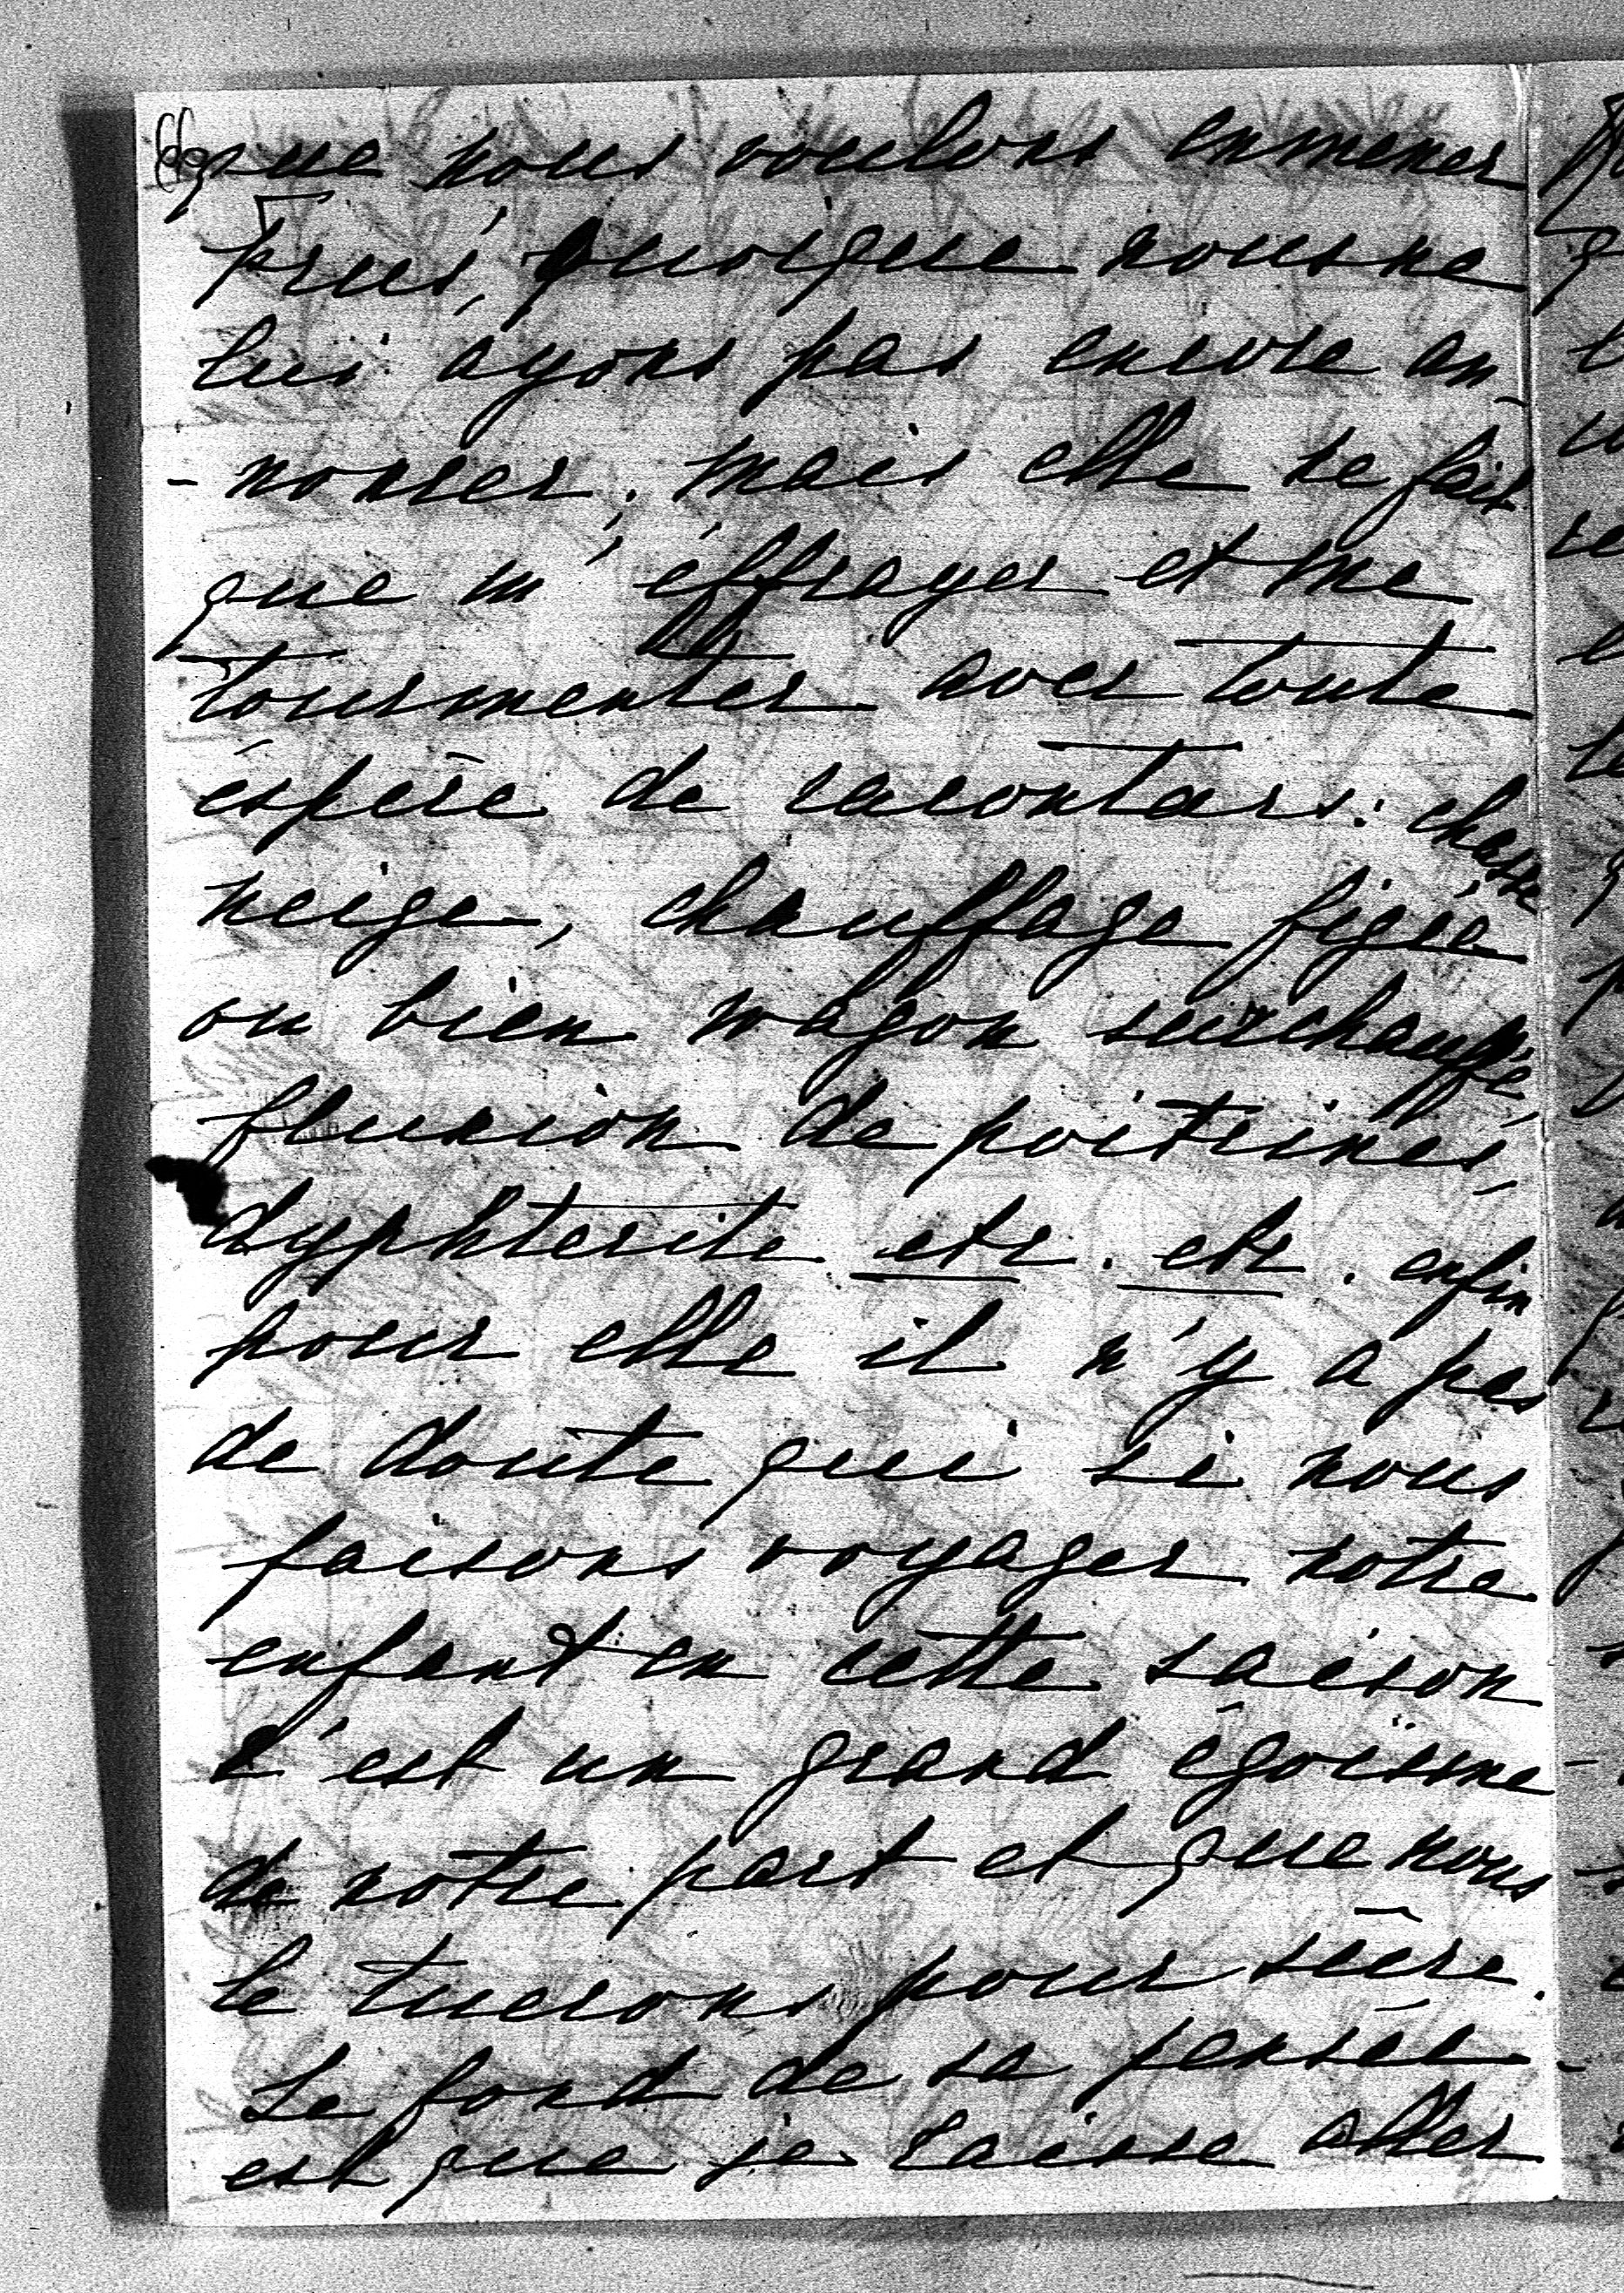 que nous voulons enmener
quoique nous ne
lui ayons pas encore an
- noncer; mais elle ne fait
que m'éffrayer et me
tourmenter avec toute
éspèce de racontars: chasse
neige, chauffage figée
ou bien wagon surchauffé,
fluxion de poitrines,
dyphterite etc. etc. enfin
pour elle il n'y a pas
de doute que si nous
faisons voyager notre
enfant en cette saison
c'est un grand égoïsme
de notre part et que nous
le tuerons pour sûre.
Le fond de sa pensée
est que je laisse aller